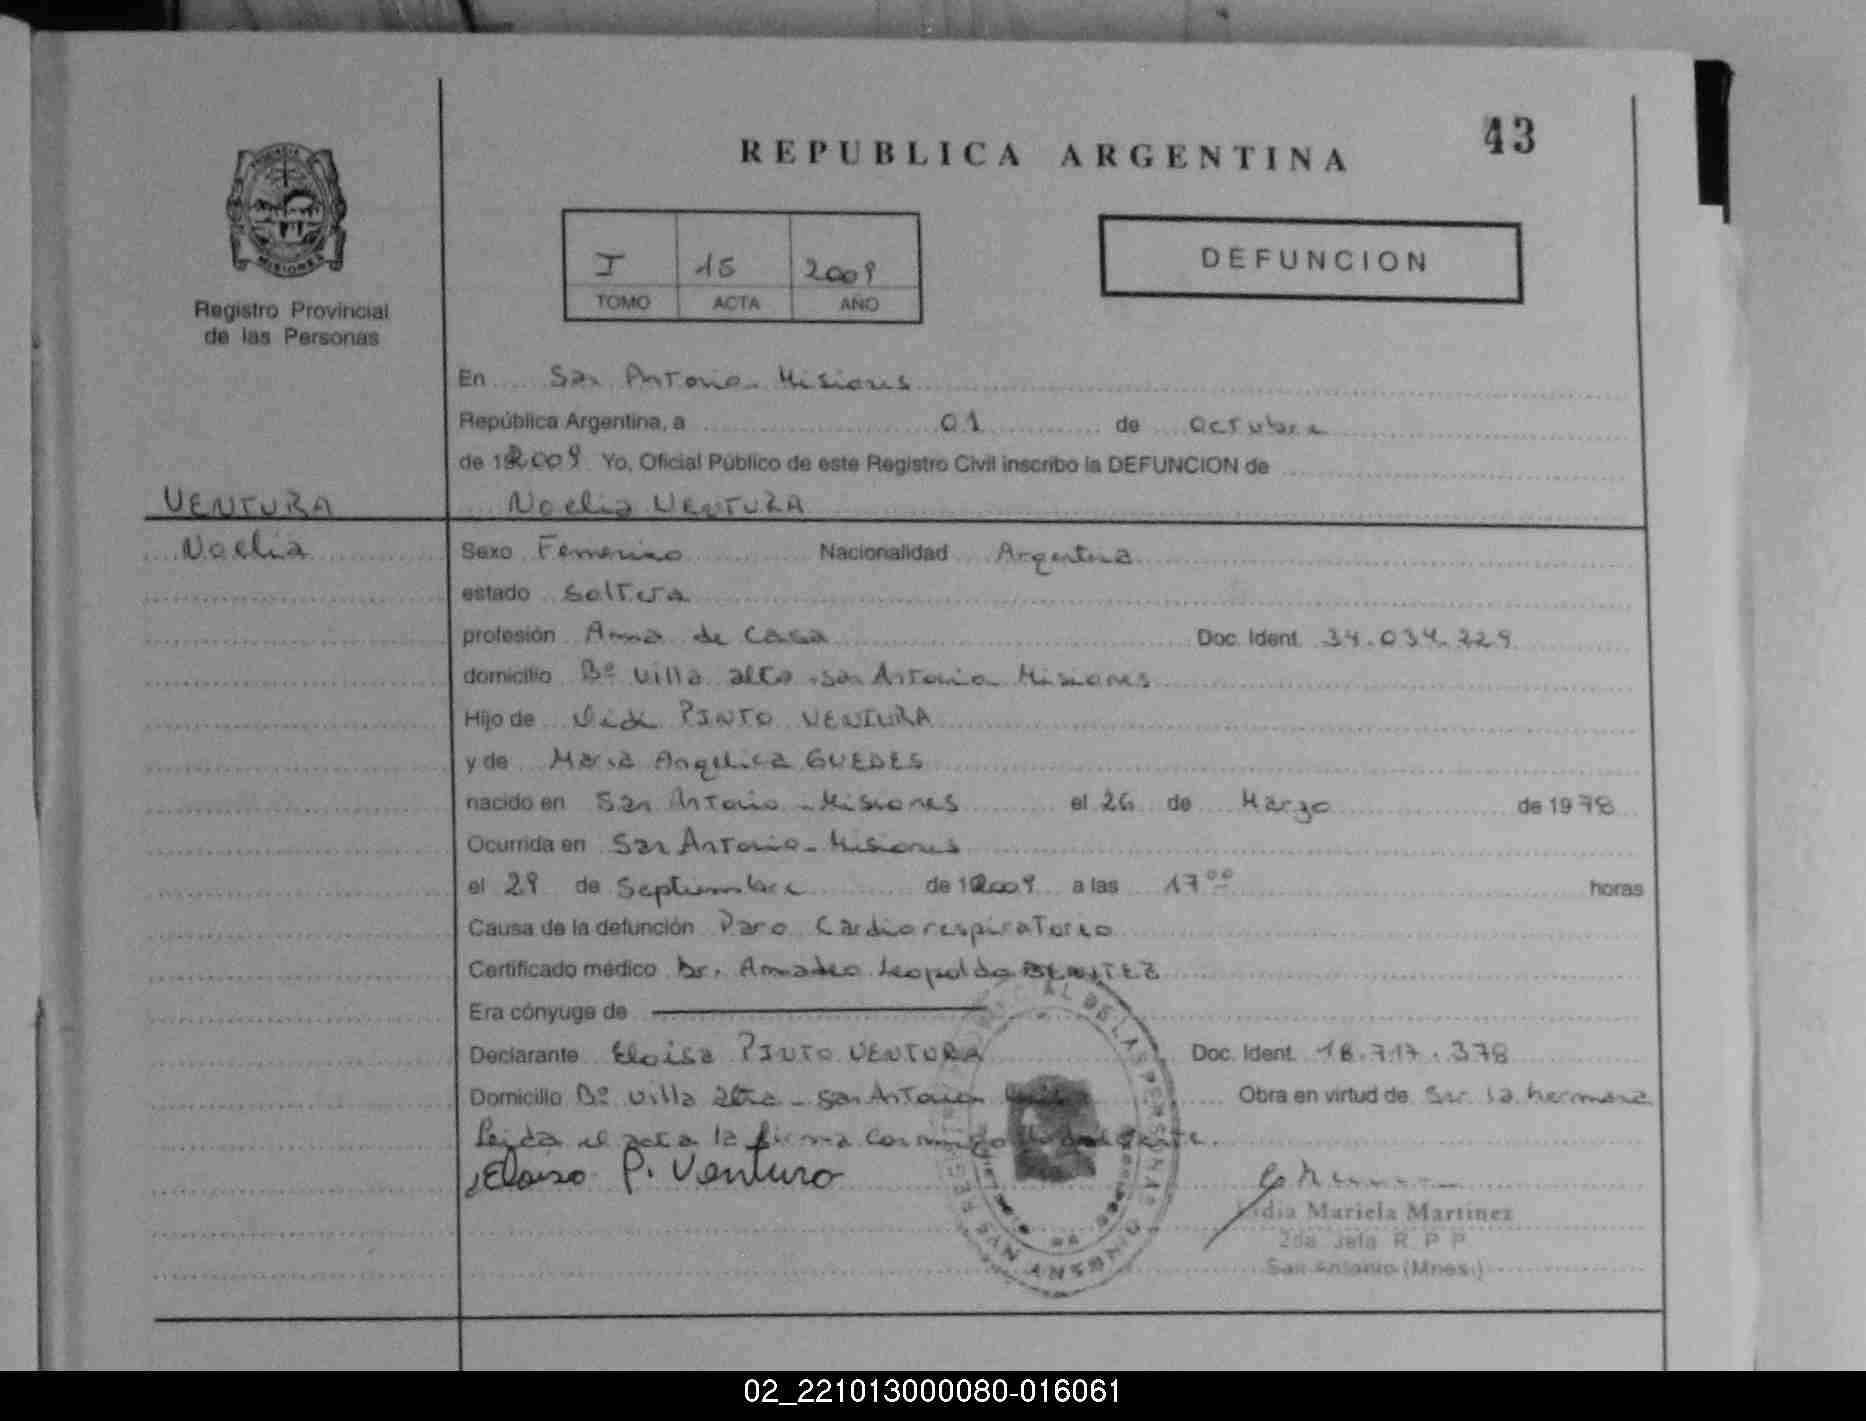 43
REPUBLICA ARGENTINA
DEFUNCION
I 15 2009
TOMO ACTA AÑO
PROVINCIA
MISIONES
Registro Provincial
de las Personas
En San Antonio - Misiones
República Argentina, a 01 de Octubre
de 2009 Yo, Oficial Público de este Registro Civil inscribo la DEFUNCION de
VENTURA Noelia VENTURA
Noelia
Sexo Femenino Nacionalidad Argentina
estado Soltera
profesión Ama de Casa Doc. Ident. 34.034.229
domicilio Bº Villa alta - San Antonio Misiones
Hijo de PINTO VENTURA
y de Maria Angelica GUEDES
nacido en San Antonio - Misiones el 26 de Marzo de 1978
Ocurrida en San Antonio - Misiones
el 29 de Septiembre de 2009 a las 17 00 horas
Causa de la defunción Paro Cardiorespiratorio
Certificado médico Dr. Amadeo Leopoldo BENITEZ
Era cónyuge de
Declarante Eloisa PINTO VENTURA Doc. Ident. 18.717.378
Domicilio Bº Villa alta - San Antonio Obra en virtud de Ser la hermana
Leida el acta la firma conmigo
Eloiso P. Venturo
Lidia Mariela Martinez
2da Jefa R P P
San Antonio (Mnes.)
02_221013000080-016061